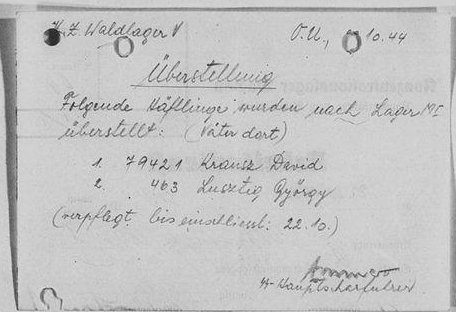 K.Z. Waldlager V O.U., 10.44
Überstellung
Folgende Häftlinge wurden nach Lager M I
überstellt: (Väter dort)
1. 79421 Krausz David
2. 463 Lusztig György
(verpflegt bis einschliessl: 22.10.)
Hauptscharführer